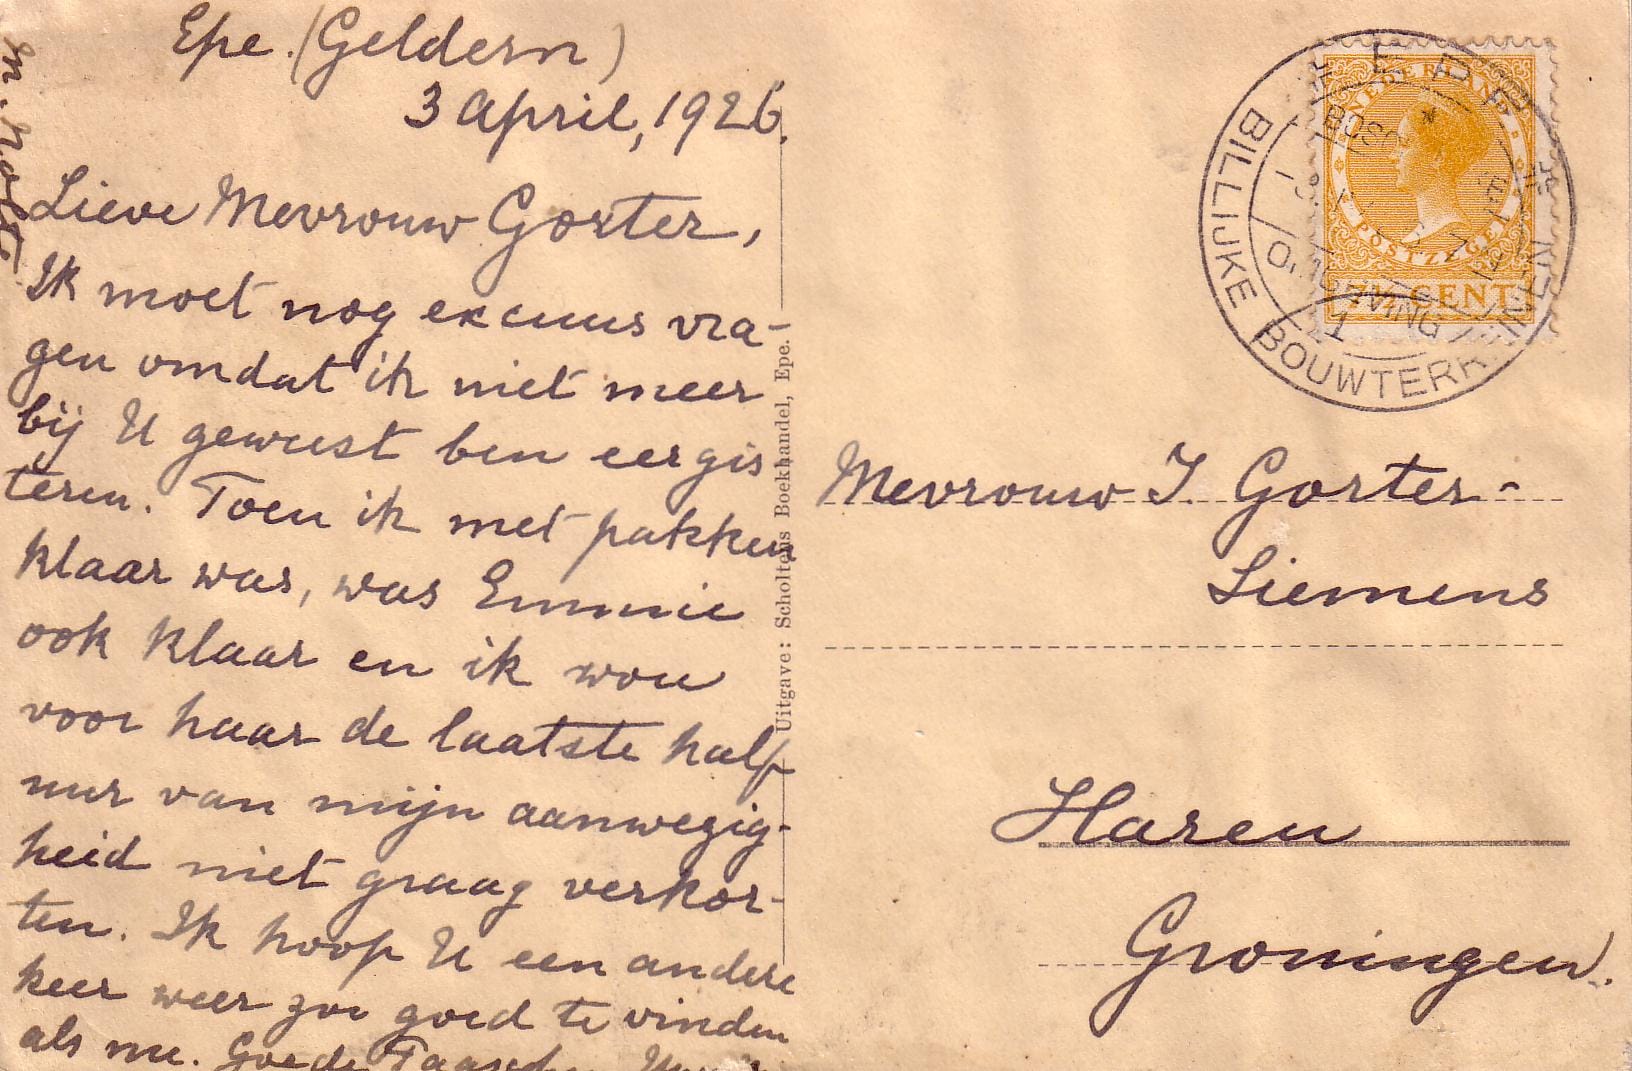 Epe. (Geldern)
3 april, 1926.
Lieve Mevrouw Gorter,
Ik moet nog excuus vra-
gen omdat ik niet meer
bij U geweest ben eergis-
teren. Toen ik met pakken
klaar was, was Emmie
ook klaar en ik wou
voor haar de laatste half
uur van mijn aanwezig-
heid niet graag verkor-
ten. Ik hoop U een andere
keer weer zoo goed te vinden
als nu. Goede Paaschen
Uitgave: Scholtens Boekhandel, Epe.
NEDERLAND
POSTZEGEL
7½ CENT
EPE
BOSCHRIJKE
OMGEVING
BILLIJKE BOUWTERREINEN
1
Mevrouw J. Gorter-
Siemens
Haren
Groningen.